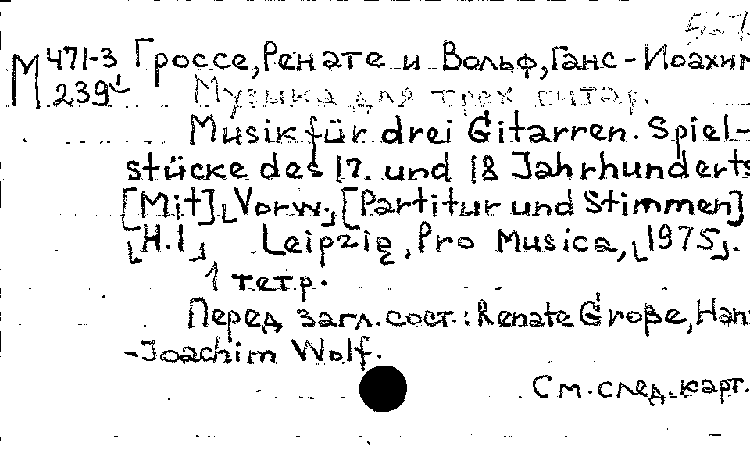 М 471-3 Гроссе, Ренате и Вольф, Ганс-Иоахим
239
Музыка для трех гитар.
Musik für drei Gitarren. Spiel-
stücke des 17. und 18 Jahrhunderts
[Mit] Vorw. [Partitur und Stimmen]
H.1 Leipzig, Pro Musica, 1975.
1 тетр.
Перед загл. сост.: Renate Große, Hans
-Joachim Wolf.
См. след. карт.